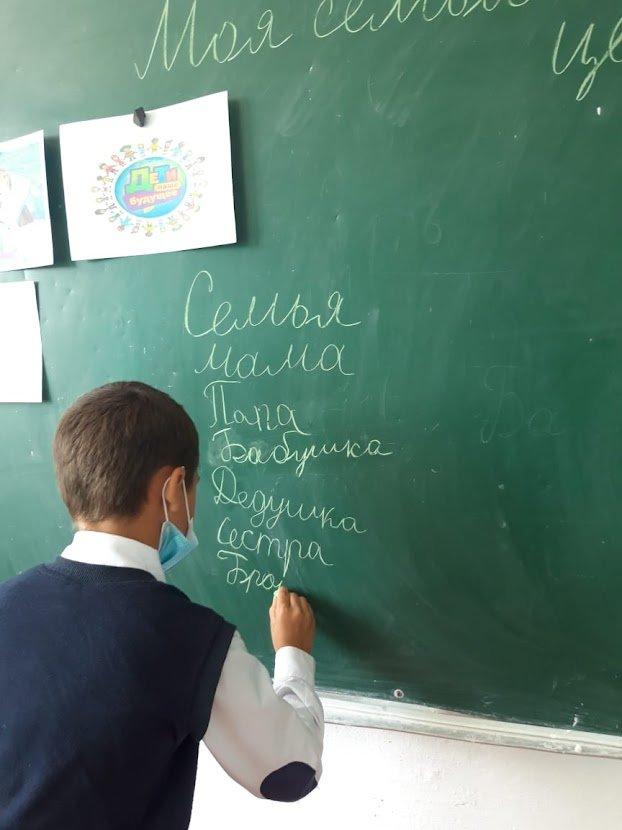 Моя семья
це
ДЕТИ
наше
будущее
Семья
мама
Папа
Бабушка
Дедушка
Сестра
Бра
Ба